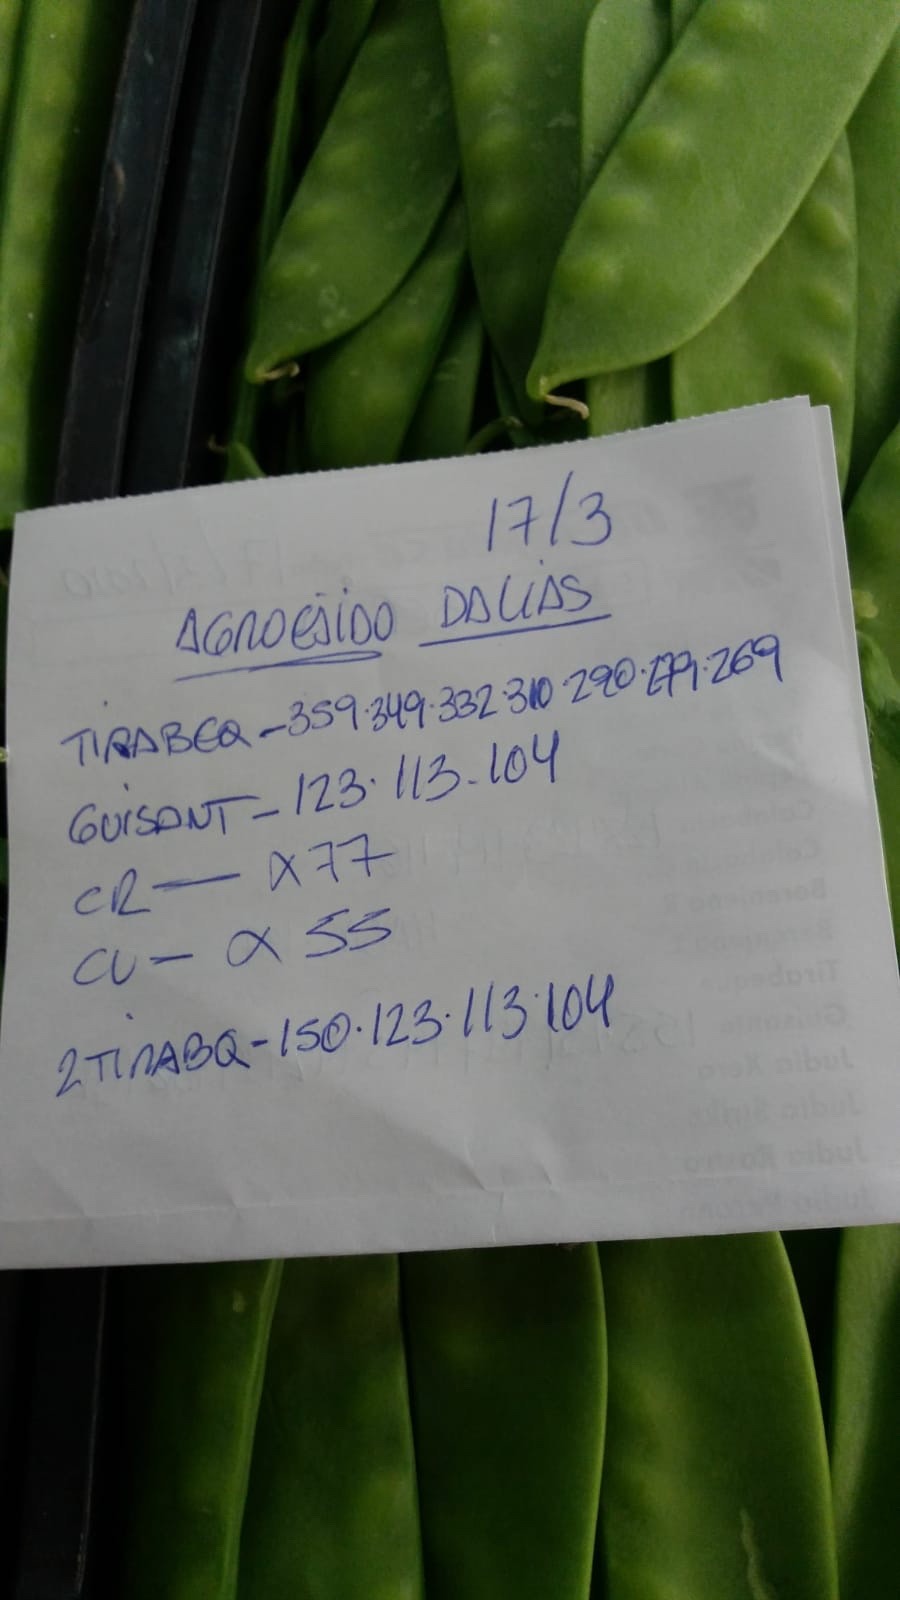 17/3
AGROEJIDO DALIAS
TIRABEQ-359.349.332.310.290.279.269
GUISANT-123.113-104
CR — α77
CU - α 55
2TIRABQ-150.123.113.104